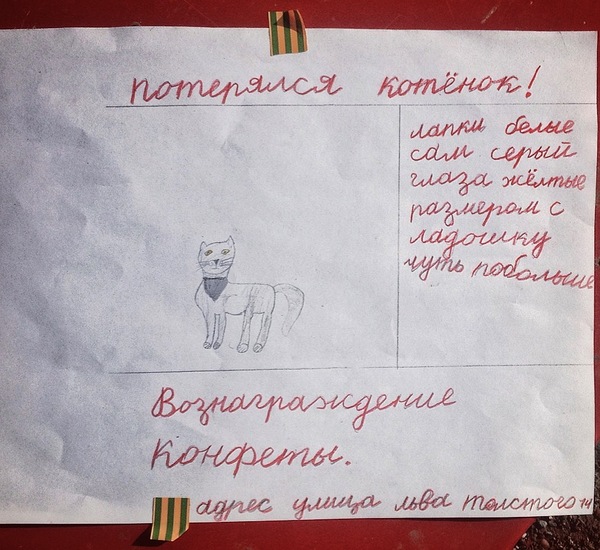 потерялся котёнок!
лапки белые
сам серый
глаза жёлтые
размером с
ладошку
чуть побольше
Вознаграждение
Конфеты.
адрес улица льва толстого 14